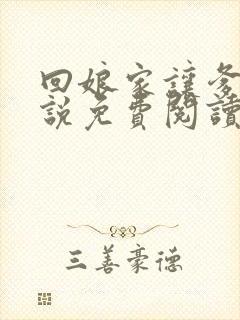 回娘家讓爹
說免費閱讀
三善豪德